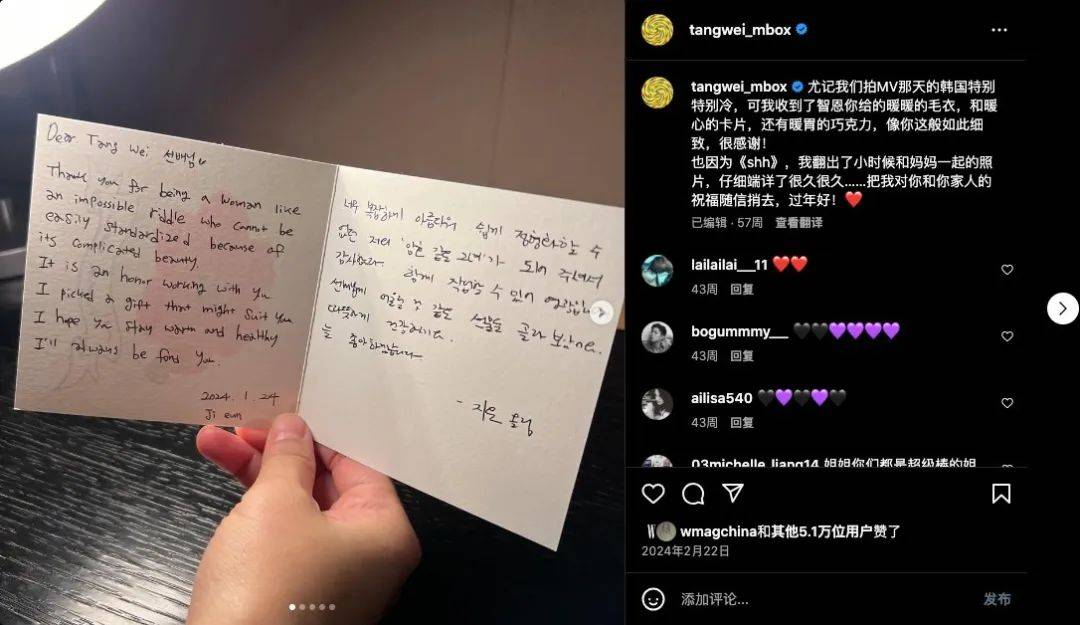 Dear Tang Wei 선배님
Thank you for being a woman like
an impossible riddle who cannot be
easily standardized because of
its complicated beauty.
It is an honor working with you
I picked a gift that might suit you
I hope you stay warm and healthy
I'll always be fond you.
2024. 1. 24
Ji eun
너무 복잡하게 아름다워 쉽게 정형화할 수
없는 저의 '암호 같은 그녀'가 되어 주셔서
감사합니다. 함께 작업할 수 있어 영광입니다
선배님께 어울릴 것 같은 선물을 골라 보았어요.
따뜻하게 건강하시고.
늘 좋아하겠습니다
- 지은 올림
tangwei_mbox
tangwei_mbox 尤记我们拍MV那天的韩国特别
特别冷，可我收到了智恩你给的暖暖的毛衣，和暖
心的卡片，还有暖胃的巧克力，像你这般如此细
致，很感谢！
也因为《shh》，我翻出了小时候和妈妈一起的照
片，仔细端详了很久很久......把我对你和你家人的
祝福随信捎去，过年好！❤️
已编辑 · 57周 查看翻译
lailailai___11 ❤️❤️
43周 回复
bogummmy___ 🖤🖤💜💜💜💜
43周 回复
ailisa540 🖤💜🖤💜🖤
43周 回复
03michelle_liang14 姐姐你们都是超级棒的姐
wmagchina和其他5.1万位用户赞了
2024年2月22日
添加评论...
发布